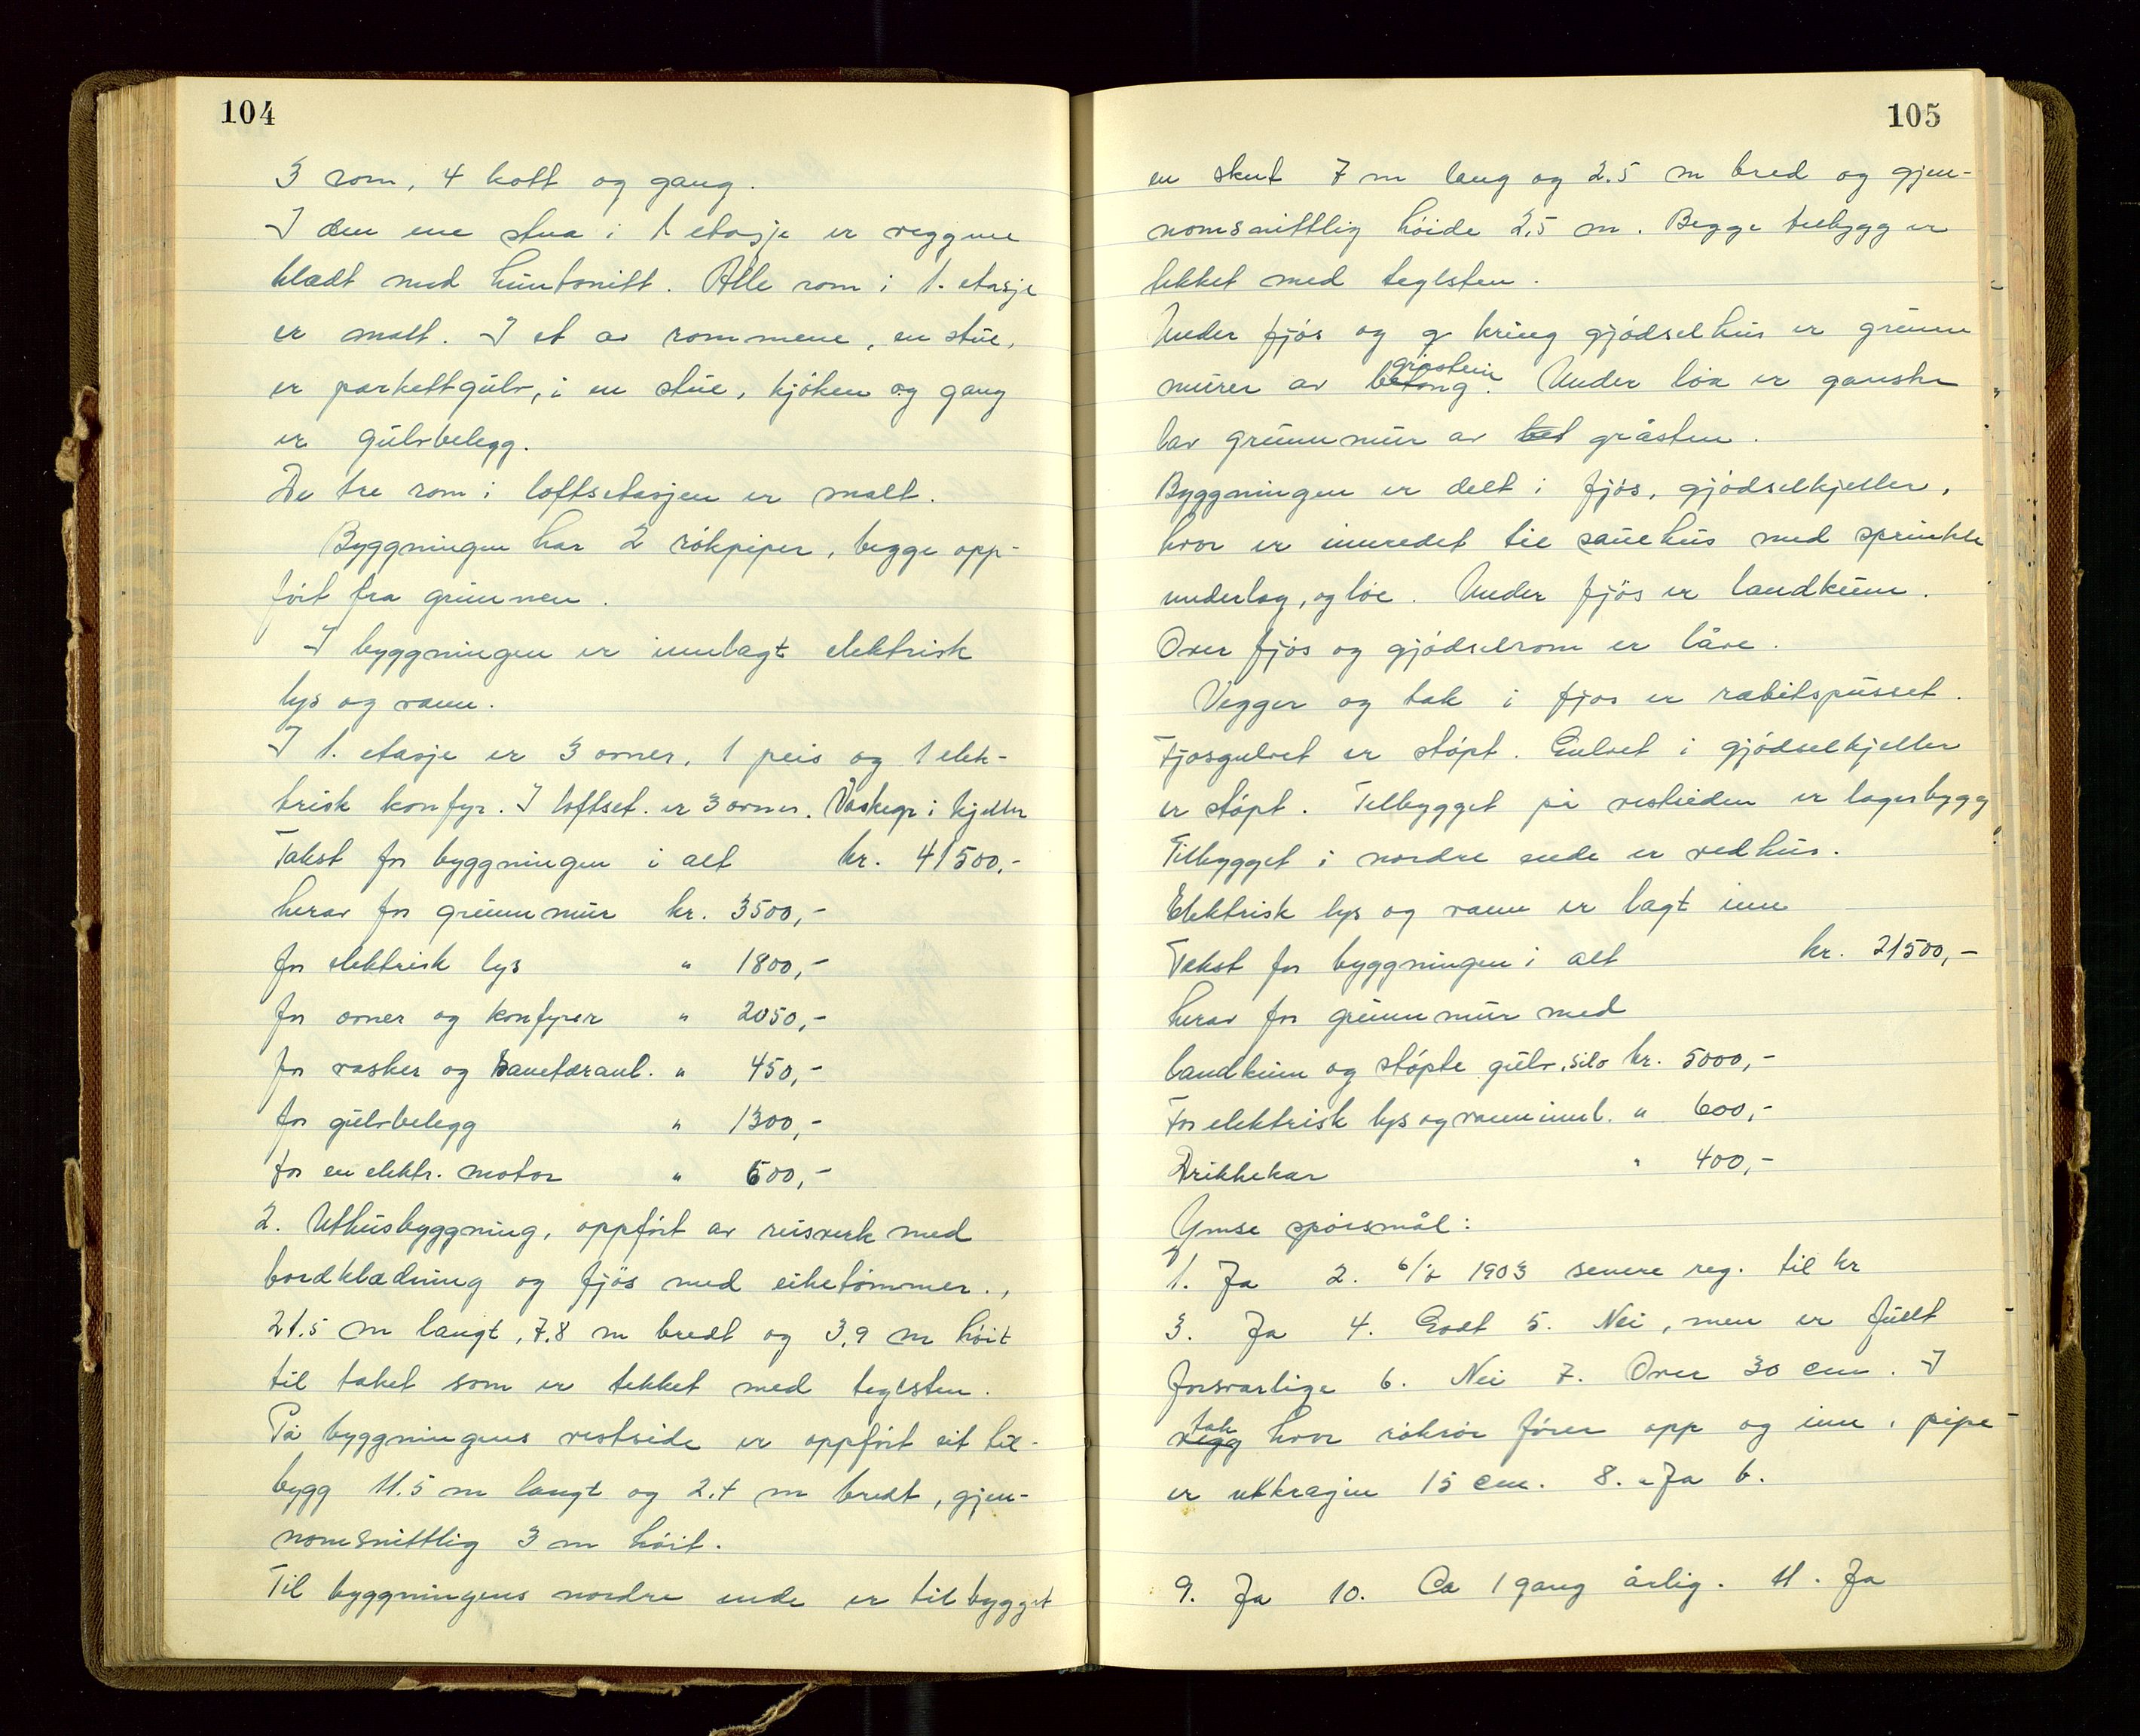 104
3 rom, 4 kott og gang.
I den ene stua i 1 etasje er veggene
klædt med huntonitt. Alle rom i 1. etasje
er malt. I et av rommene, en stue,
er parkettgulv, i en stue, kjøken og gang
er gulvbelegg.
De tre rom i loftsetasjen er malt.
Byggningen har 2 rökpiper, begge opp-
ført fra grunnen.
I byggningen er innlagt elektrisk
lys og vann.
I 1. etasje er 3 ovner, 1 peis og 1 elek-
trisk komfyr. I loftset. er 3 ovner. Vaskegr i kjeller
Takst for byggningen i alt kr. 41500,-
herav for grunnmur kr. 3500,-
for elektrisk lys " 1800,-
for ovner og komfyrer " 2050,-
for vasker og sanetæranl. " 450,-
for gulvbelegg " 1300,-
for en elektr. motor " 600,-
2. Uthusbyggning, oppført av reisverk med
bordklædning og fjös med eiketømmer.,
21.5 m langt, 7.8 m bredt og 3,9 m höit
til taket som er tekket med teglsten.
På byggningens vestside er oppført eit til-
bygg 11.5 m langt og 2.4 m bredt, gjen-
nomsnittlig 3 m höit.
Til byggningens nordre ende er tilbygget
105
en skut 7 m lang og 2.5 m bred og gjen-
nomsnittlig höide 2,5 m. Begge tilbygg er
tekket med teglsten.
Under fjös og g kring gjödselhus er grunn
gråstein
murer av betong. Under löa er ganske
lav grunnmur av bet gråsten.
Byggningen er delt i fjös, gjödselkjeller,
hvor er innredet til sauehus med sprinkle
underlag, og löe. Under fjös er landkum.
Over fjös og gjödselrom er låve.
Vegger og tak i fjos er rabitspusset.
Fjosgulvet er støpt. Gulvet i gjödselkjeller
er støpt. Tilbygget på vestsiden er lagerbygg
Tilbygget i nordre ende er vedhus.
Elektrisk lys og vann er lagt inn
Takst for byggningen i alt kr. 21500,-
herav for grunnmur med
landkum og støpte gulv, silo kr. 5000,-
For elektrisk lys og vanninnl. " 600,-
Drikkekar " 400,-
Ymse spörsmål:
1. Ja 2. 1903 senere reg. til kr
3. Ja 4. Godt 5. Nei, men er fullt
forsvarlige 6. Nei 7. Over 30 cm. I
tak
vegg hvor rökrör förer opp og inn i pipe
er utkragin 15 cm. 8. a Ja b.
9. Ja 10. Ca 1 gang årlig. 11. Ja